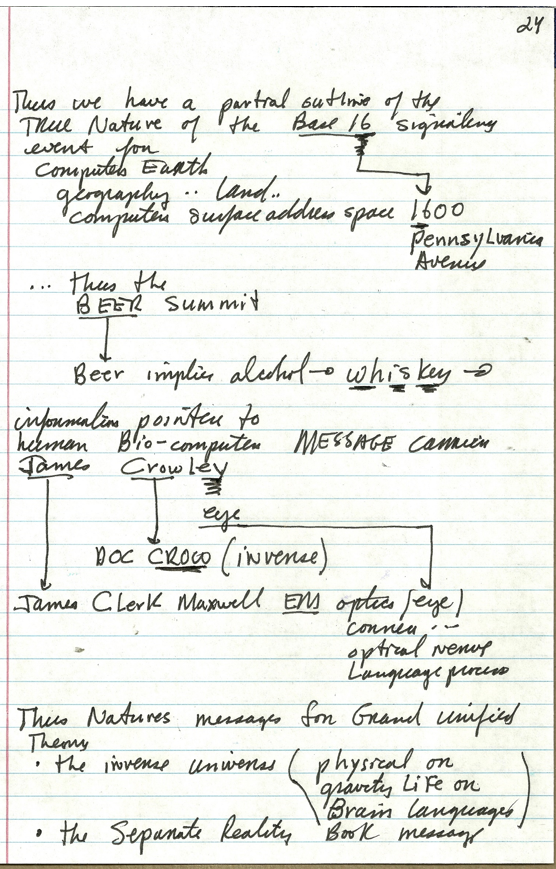 24
Thus we have a partial outline of the
TRUE Nature of the Base 16 signaling
event for
Computer Earth
geography .. land..
computer surface address space 1600
Pennsylvania
Avenue
... thus the
BEER Summit
Beer implies alcohol → whiskey →
information pointer to
human Bio-computer MESSAGE carrier
James Crowley
eye
DOC CROW (invense)
James Clerk Maxwell EM optics (eye)
cornea ...
optical nerve
Language process
Thus Natures messages for Grand unified
Theory
• the inverse universe (physical or
gravity Life or
Brain Languages)
• the Separate Reality Book message